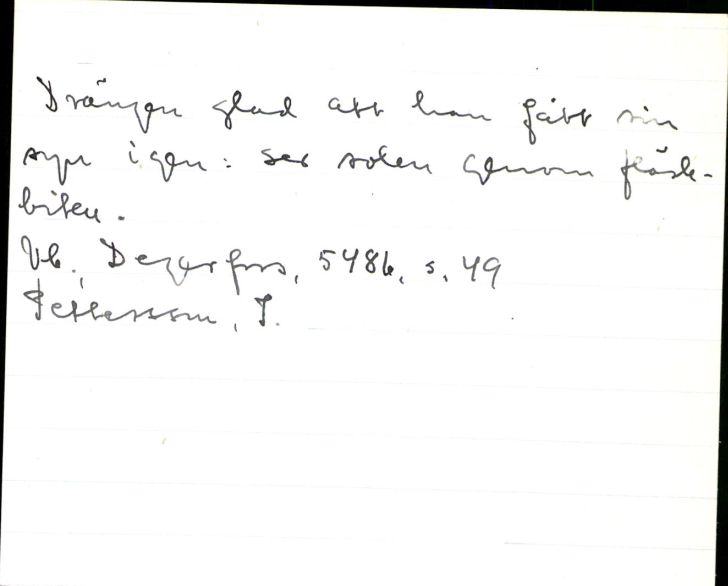 Drängen glad att han fått sin
syn igen: ser solen genom fläsk-
biten.
Vb., Degerfors, 5486, s. 49
Pettersson, J.